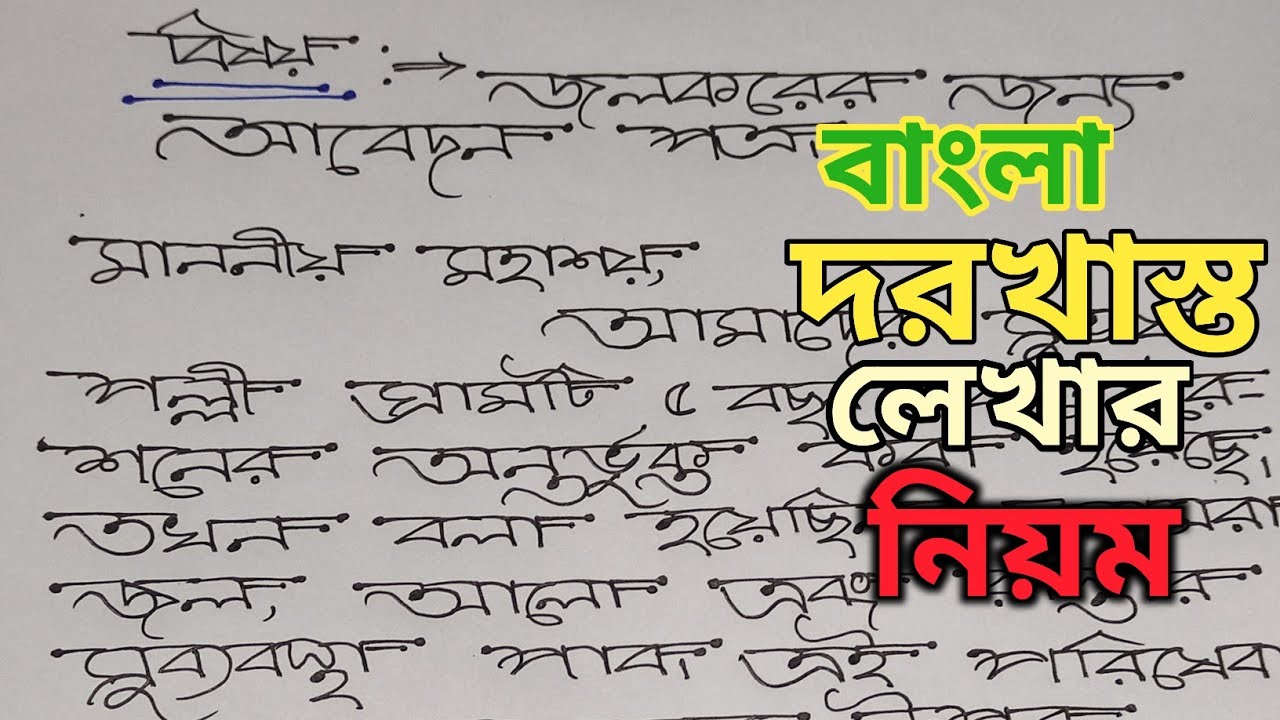 বিষয় :→ জলকরের জন্য
আবেদন পত্র।
মাননীয় মহাশয়,
আমাদের
পল্লী গ্রামটি ৫
শনের অন্তর্ভুক্ত করা হয়েছে।
তখন বলা হয়েছিল
জল, আলো এবং
সুব্যবস্থা পাব। এই পরিষেবা
বাংলা
দরখাস্ত
লেখার
নিয়ম